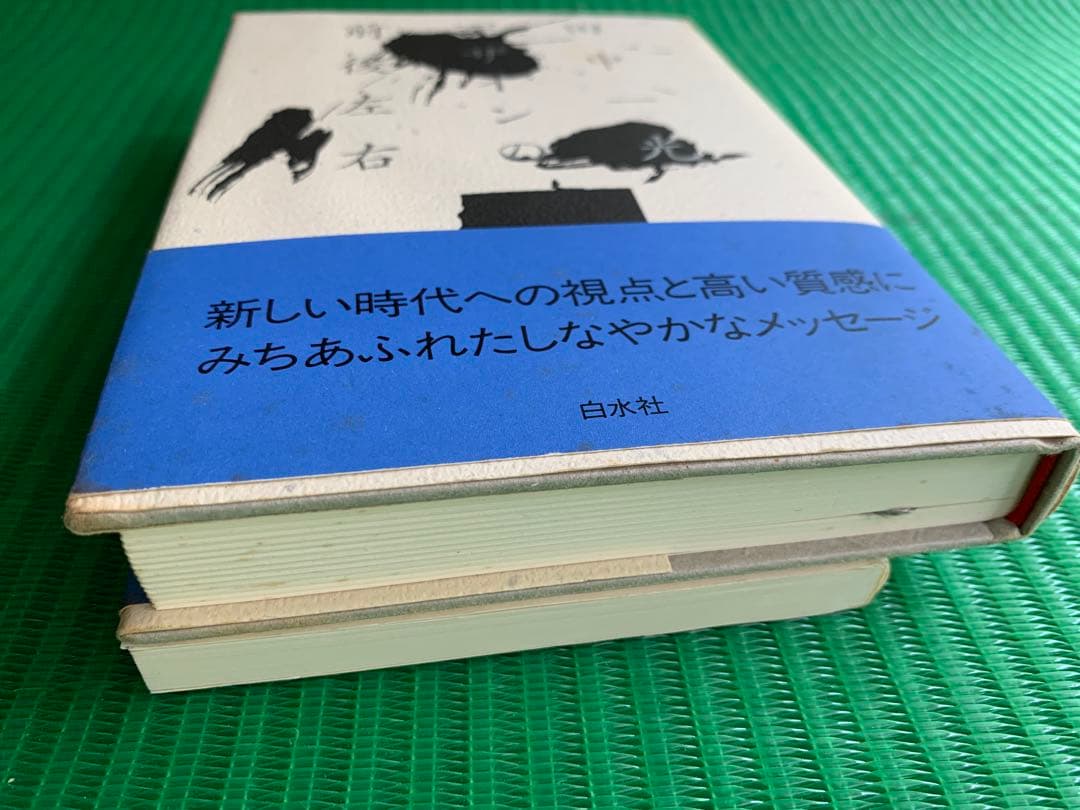 田中一光
ンの
前後左右
新しい時代への視点と高い質感に
みちあふれたしなやかなメッセージ
白水社